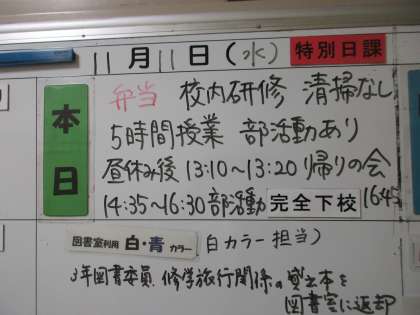 11月11日(水) 特別日課
本日
弁当 校内研修 清掃なし
5時間授業 部活動あり
昼休み後 13:10~13:20 帰りの会
14:35~16:30 部活動 完全下校 16:45
図書室利用 白・青 カラー 白カラー担当)
3年図書委員 修学旅行関係の貸出本を
図書室に返却